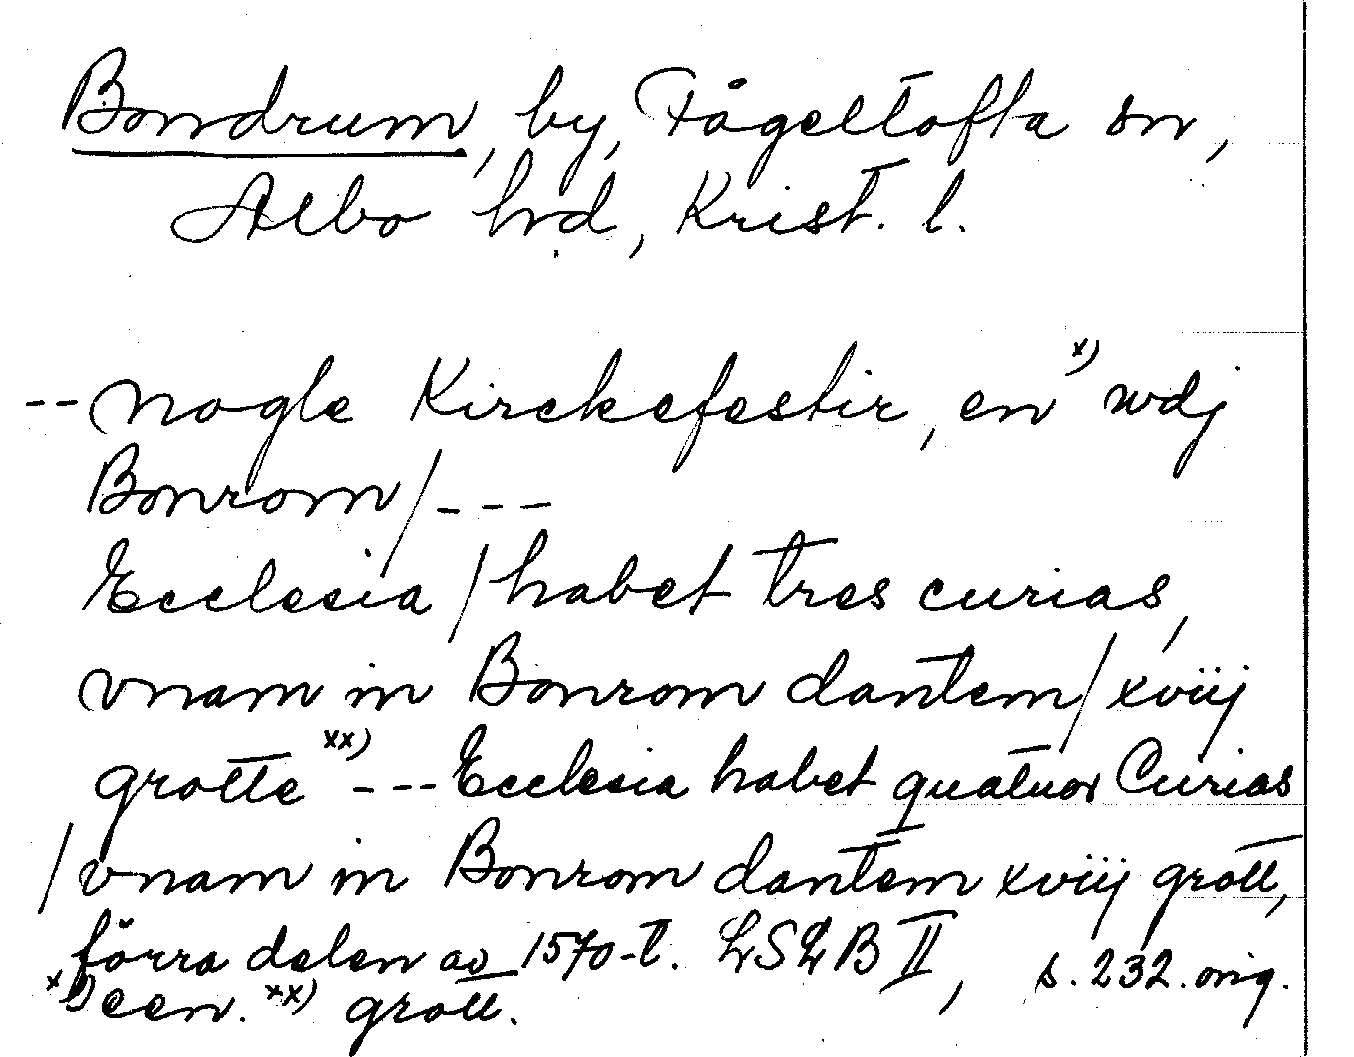 Bondrum, by, Fågeltofta sn,
Albo hd, Krist. l.
-- nogle Kirckefestir, en x) wdj
Bonrom/---
Ecclesia/habet tres curias,
vnam in Bonrom dantem/xviij
grotte xx) --- Ecclesia habet quatuor Curias
/vnam in Bonrom dantem xviij grott,
förra delen av 1570-t. LSLB II, s. 232. orig.
x) een. xx) grott.